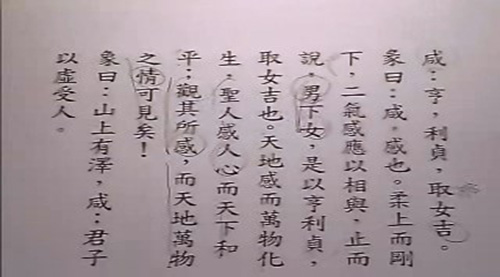 咸：亨，利貞，取女吉。
彖曰：咸，感也。柔上而剛
下，二氣感應以相與，止而
說，男下女，是以亨利貞，
取女吉也。天地感而萬物化
生，聖人感人心而天下和
平；觀其所感，而天地萬物
之情可見矣！
象曰：山上有澤，咸；君子
以虛受人。